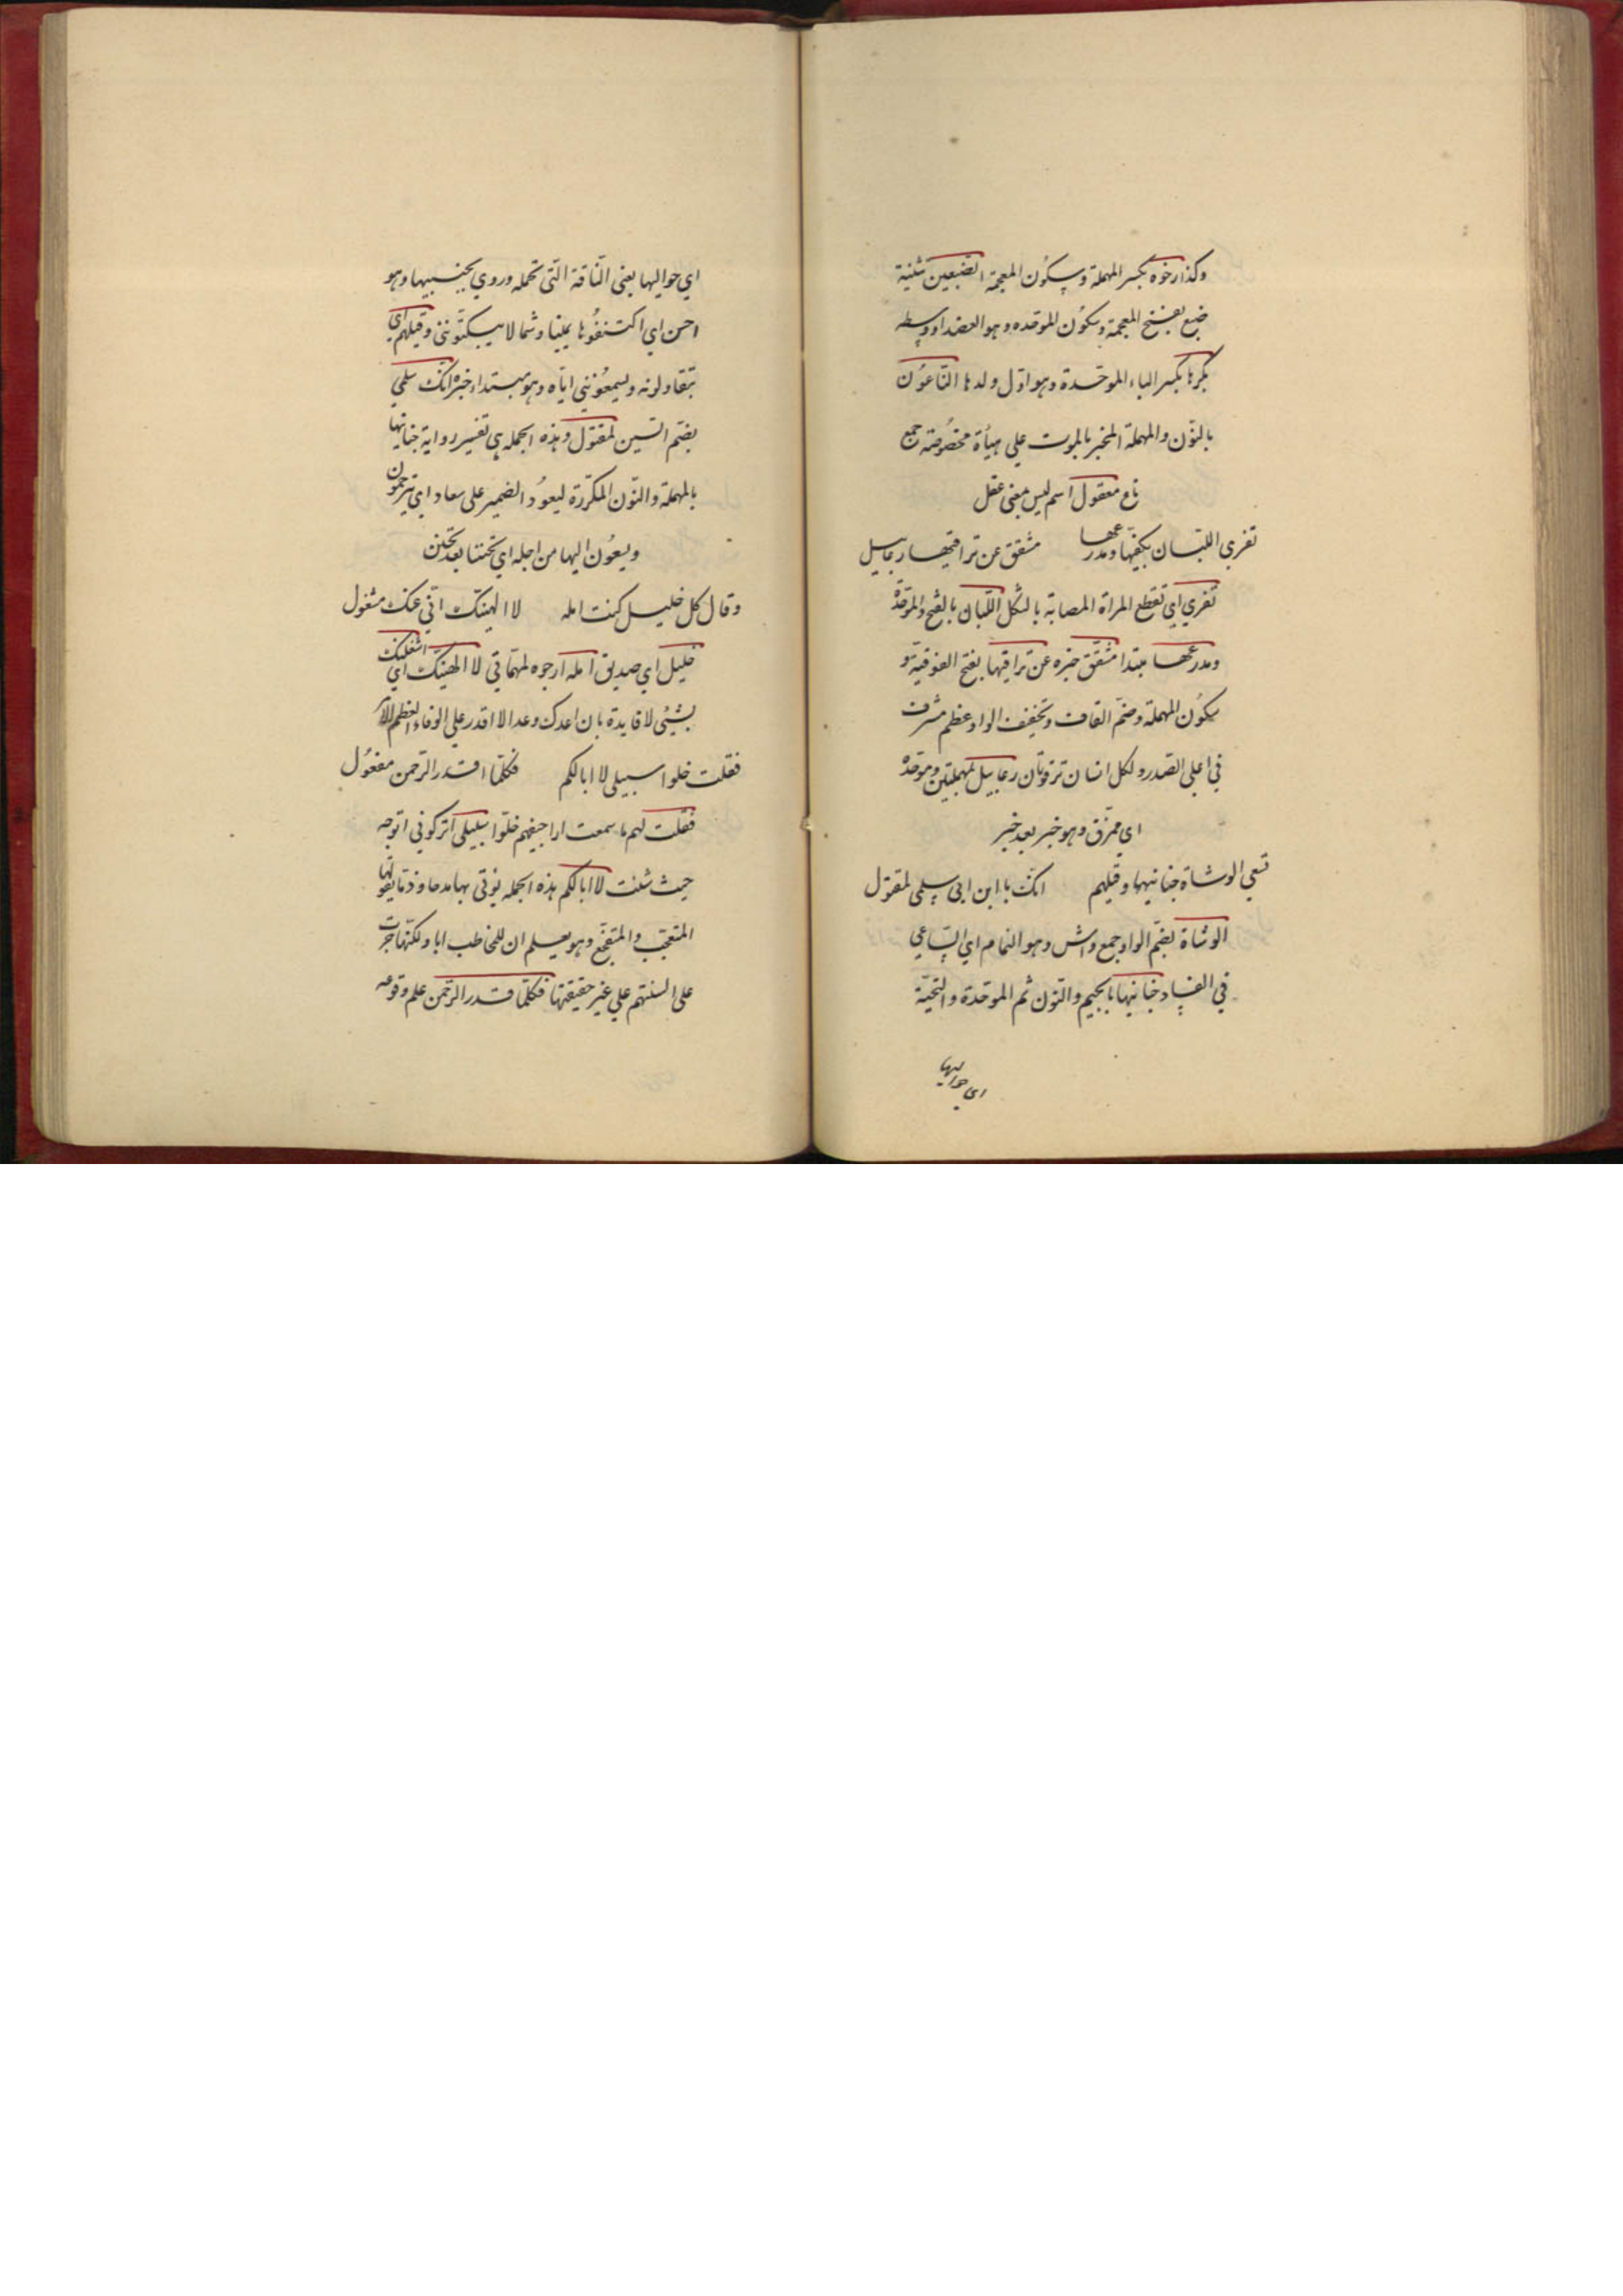 وكذا رخوه بكسر المهملة وسكون المعجمة الضبعين تثنية
ضبع بفتح المعجمة وسكون الموحده وهو العضد او وسطه
بكرها بكسر الباء الموحدة وهو اول ولدها الناعون
بالنون والمهملة المخبر بالموت علي هيأة مخصوصة جمع
ناع معقول اسم ليس معنى عقل
تفري اللبان بكفيها ومدرعها مشقق عن تراقيها رعابيل
تفري اي تقطع المراة المصابة بالثكل اللبان بالفتح والموحدة
ومدرعها مبتدا مشقق خبره عن تراقيها بفتح الفوقية و
سكون المهملة وضم القاف وتخفيف الواو عظم مشرف
في اعلى الصدر ولكل انسان ترقوتان رعابيل بمهملتين وموحدة
اى ممزق وهو خبر بعد خبر
تسعى الوشاة جنابيها وقيلهم انك يا ابن ابي سلمى لمقتول
الوشاة بضم الواو جمع واش وهو النمام اي الساعي
في الفساد جنابيها بالجيم والنون ثم الموحدة والتحتية
اى حواليها
اي حواليها يعني الناقة التى تحمله وروي بجنبيها وهو
احسن اي اكتنفوها يمينا وشمالا يبكتونني وقيلهم اي
تقاولونه ويسمعونني اياه وهو مبتداء خبره انك سلمي
بضم السين لمقتول وهذه الجمله هي تفسير رواية جنابيها
بالمهملة والنون المكررة ليعود الضمير على سعاد اي يترحمون
ويسعون اليها من اجله اي تحننا بعد تحنن
وقال كل خليل كنت امله لا الهينك اني عنك مشغول
خليل اي صديق امله ارجوه لمهماتي لا الهينك اي اشغلنك
بشيئ لا فايدة بان اعدك وعدا لا اقدر على الوفاء لعظم الامر
فقلت خلوا سبيلى لا ابا لكم فكلما قدر الرحمن مفعول
فقلت لهم ما سمعت اراجيفهم خلوا سبيلى اتركوني اتوجه
حيث شئت لا ابا لكم هذه الجمله يؤتى بها مدحا وذما يقولها
المتعجب والمتفجع وهو يعلم ان للمخاطب ابا ولكنها جرت
على السنتهم على غير حقيقتها فكلما قدر الرحمن علم وقوعه